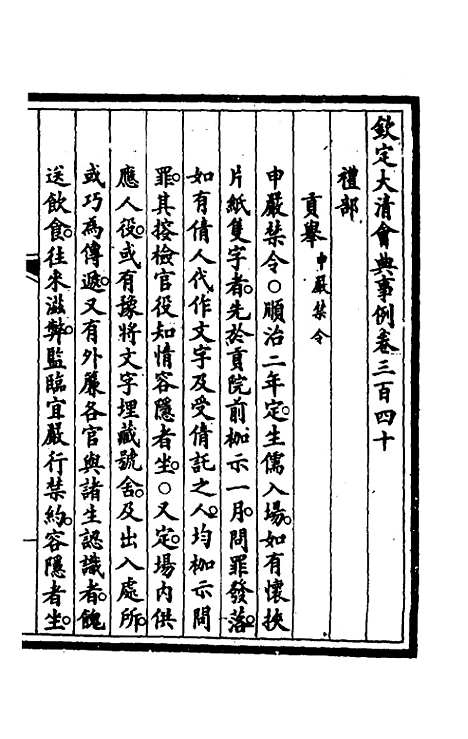 欽定大清會典事例卷三百四十
禮部
貢舉申嚴禁令
申嚴禁令○順治二年定。生儒入場。如有懷挾
片紙隻字者。先於貢院前枷示一月。問罪發落。
如有倩人代作文字及受倩託之人。均枷示問
罪。其搜檢官役知情容隱者坐。○又定。場內供
應人役。或有豫將文字埋藏號舍。及出入處所。
或巧爲傳遞。又有外簾各官與諸生認識者。餽
送飲食。往來滋弊。監臨宜嚴行禁約。容隱者坐。